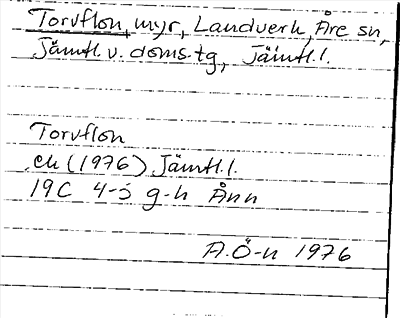 Torvflon, myr, Landverk, Åre sn,
Jämtl. v. doms.tg, Jämtl. l.
Torvflon
ek (1976) Jämtl. l.
19C 4-5 g-h Ånn
A.Ö-n 1976